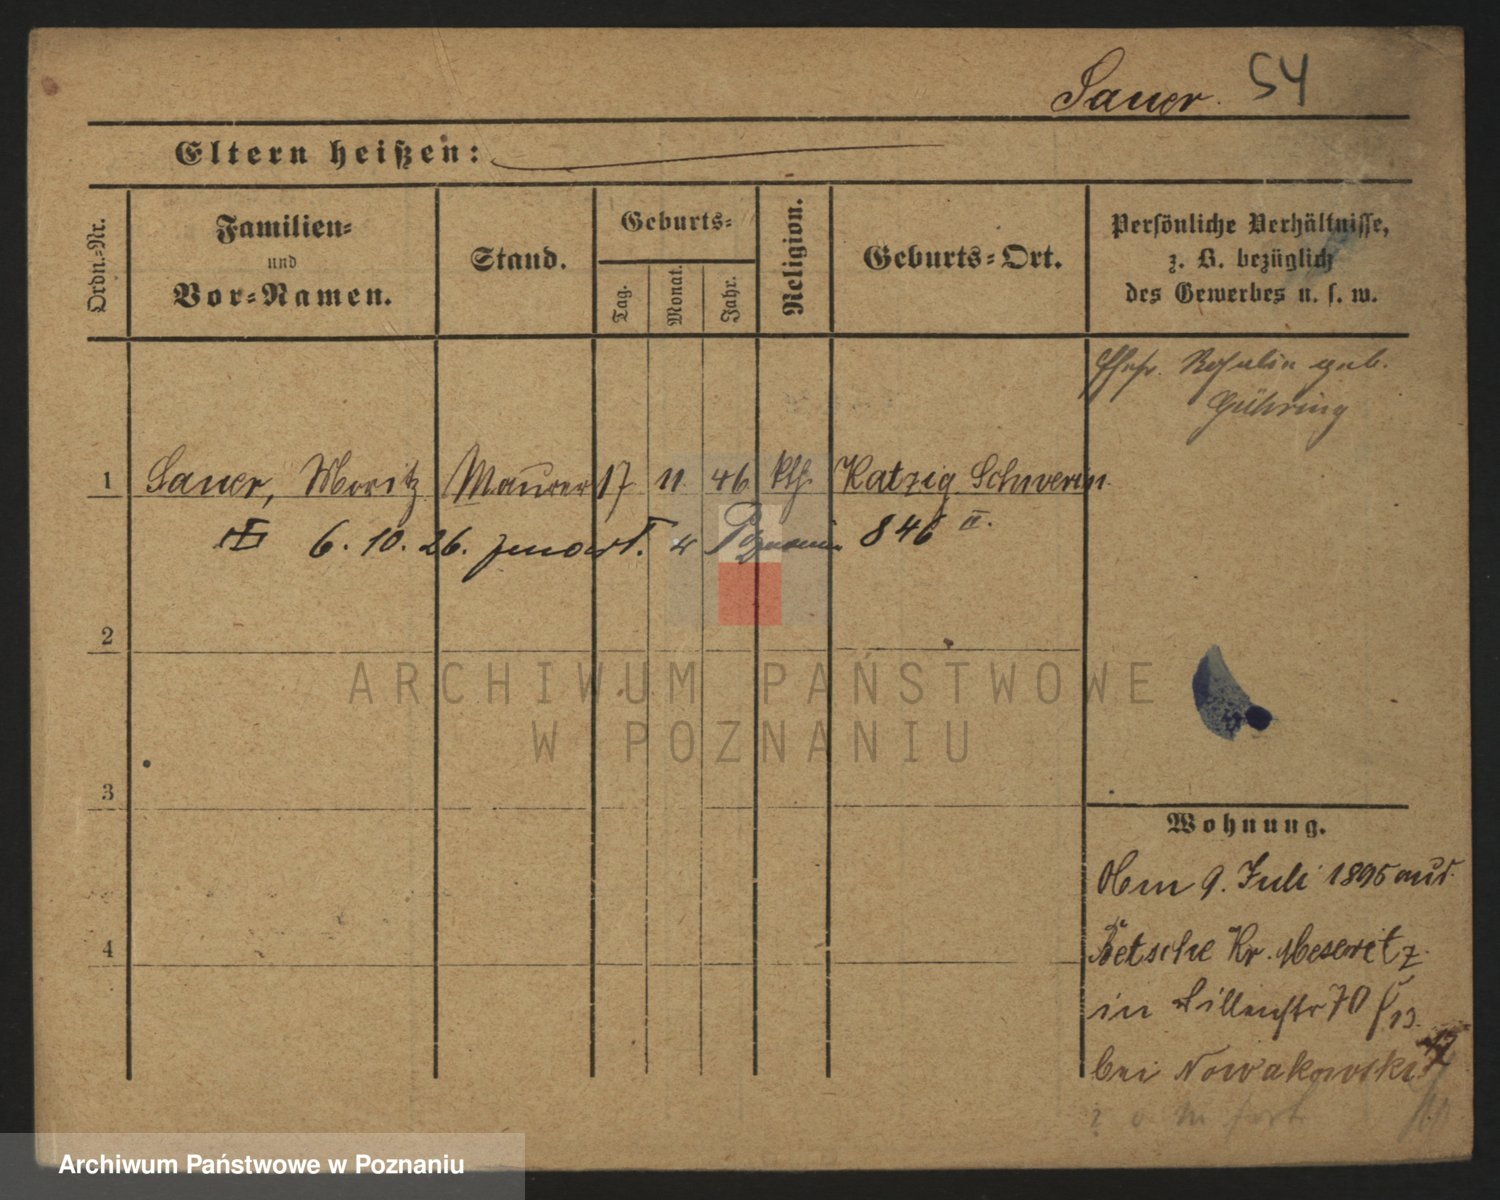 Sauer. 54
Eltern heißen:
Ordn.-Nr.
Familien-
und
Vor-Namen.
Stand.
Geburts-
Tag.
Monat.
Jahr.
Religion.
Geburts-Ort.
Persönliche Verhältnisse,
z. B. bezüglich
des Gewerbes u. s. w.
Ehefr. Rosalie geb.
Gühring
1 Sauer, Moritz Maurer 17 11 46 kth. Katzig Schwerin
6. 10. 26. 846 II.
2
3
4
Wohnung.
9. Juli 1895 aus
Betsche Kr. Meseritz
in 70
bei Nowakowski
ARCHIWUM PAŃSTWOWE
W POZNANIU
Archiwum Państwowe w Poznaniu